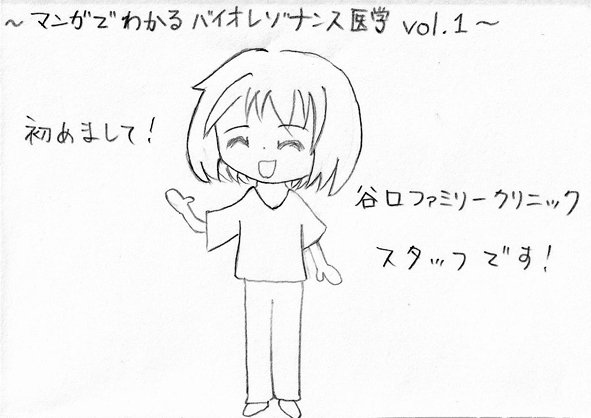 ～マンガでわかるバイオレゾナンス医学 vol.1～
初めまして！
谷口ファミリークリニック
スタッフです！